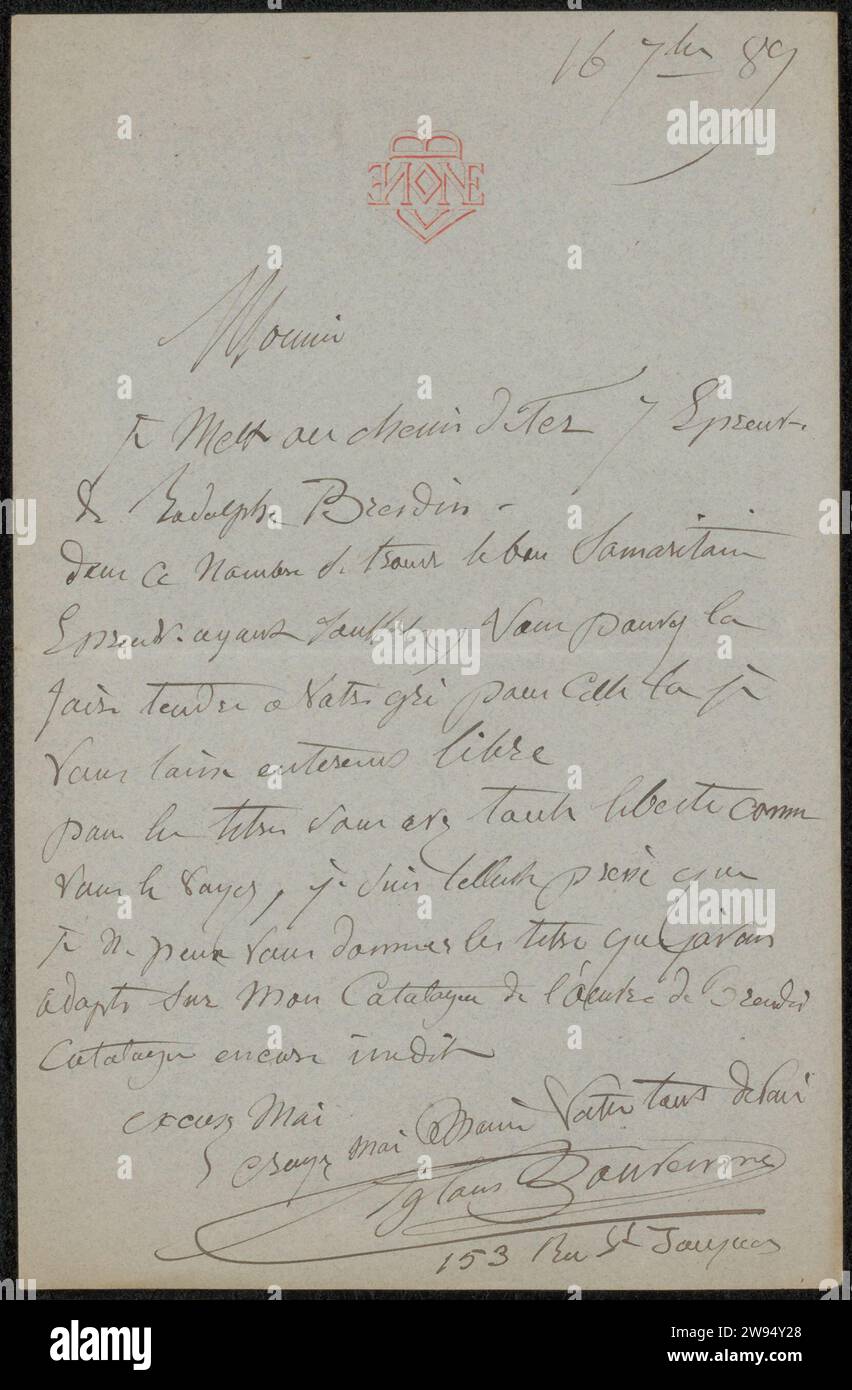 16 7bre 89
Monsieur
Je Mets au chemin de Fer 7 Epreuves
de Rodolphe Bresdin -
dans ce Nombre se trouve le bon Samaritain
Epreuve ayant souffert, vous pouvez la
faire tendre a votre gré pour celle la je
vous laisse entierement libre
pour les titres vous avez toute liberté comme
vous le voyez, je suis tellement pressé que
je ne peux vous donner les titres que j'avais
adopté sur Mon Catalogue de l'œuvre de Bresdin
Catalogue encore inedit
excusez Moi
croyez moi Monsieur Votre tout devoué
Aglaüs Bouvenne
153 Rue St Jacques
alamy
Image ID: 2W94Y28
www.alamy.com